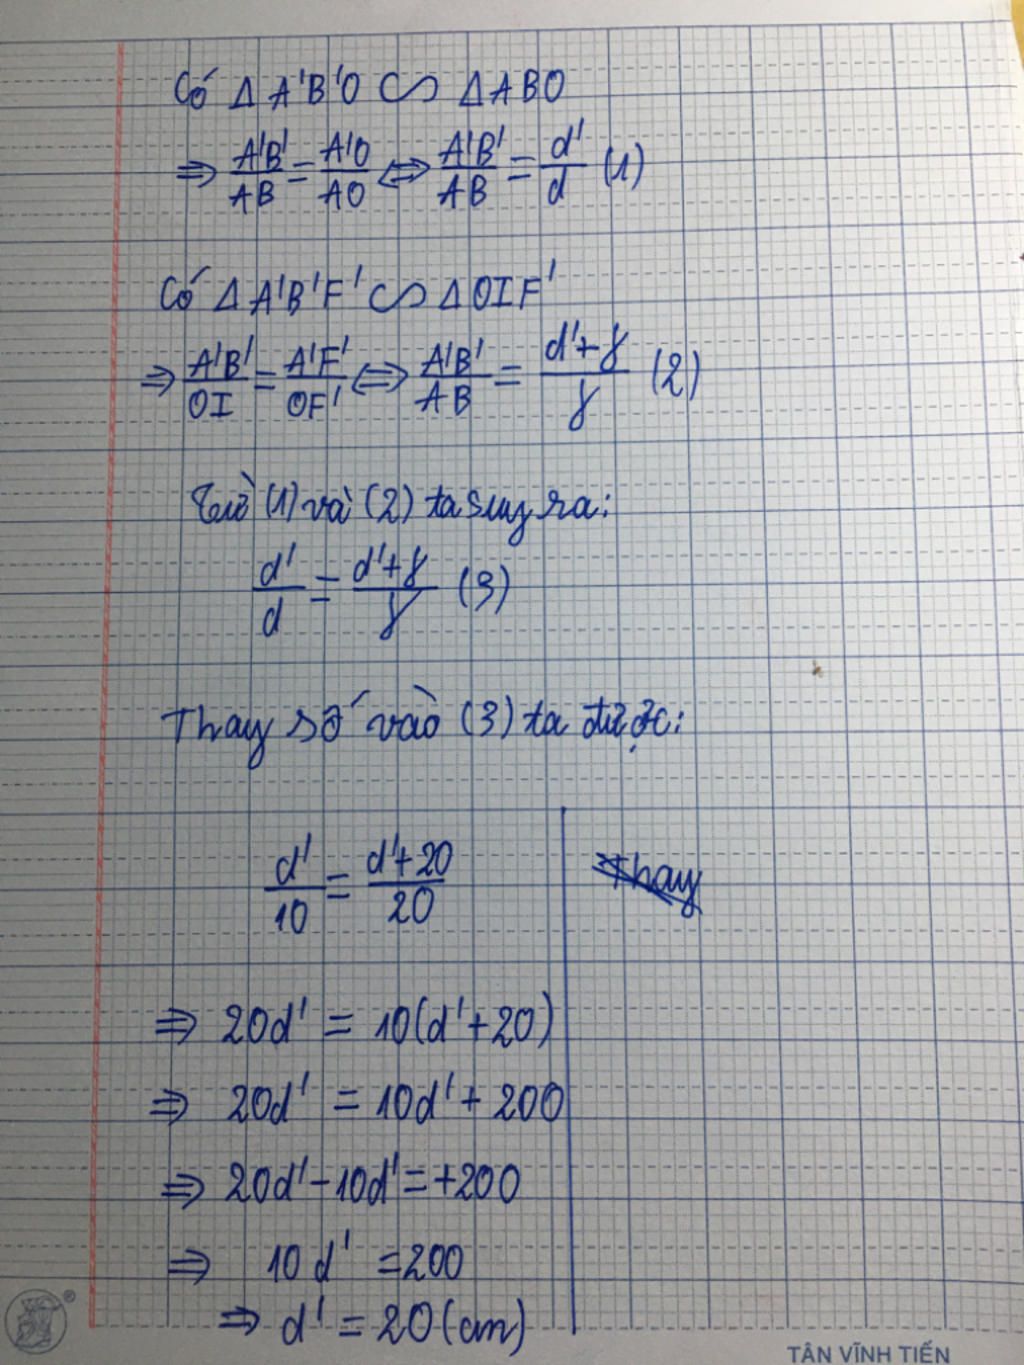 Có Δ A'B'O ∽ ΔABO
⇒ A'B'/AB = A'O/AO ⇔ A'B'/AB = d'/d (1)
Có Δ A'B'F' ∽ ΔOIF'
⇒ A'B'/OI = A'F'/OF' ⇔ A'B'/AB = d'+f/f (2)
Từ (1) và (2) ta suy ra:
d'/d = d'+f/f (3)
Thay số vào (3) ta được:
d'/10 = d'+20/20
Thay
⇒ 20d' = 10(d'+20)
⇒ 20d' = 10d'+ 200
⇒ 20d'-10d'=+200
⇒ 10d' =200
⇒ d' = 20 (cm)
®
TÂN VĨNH TIẾN